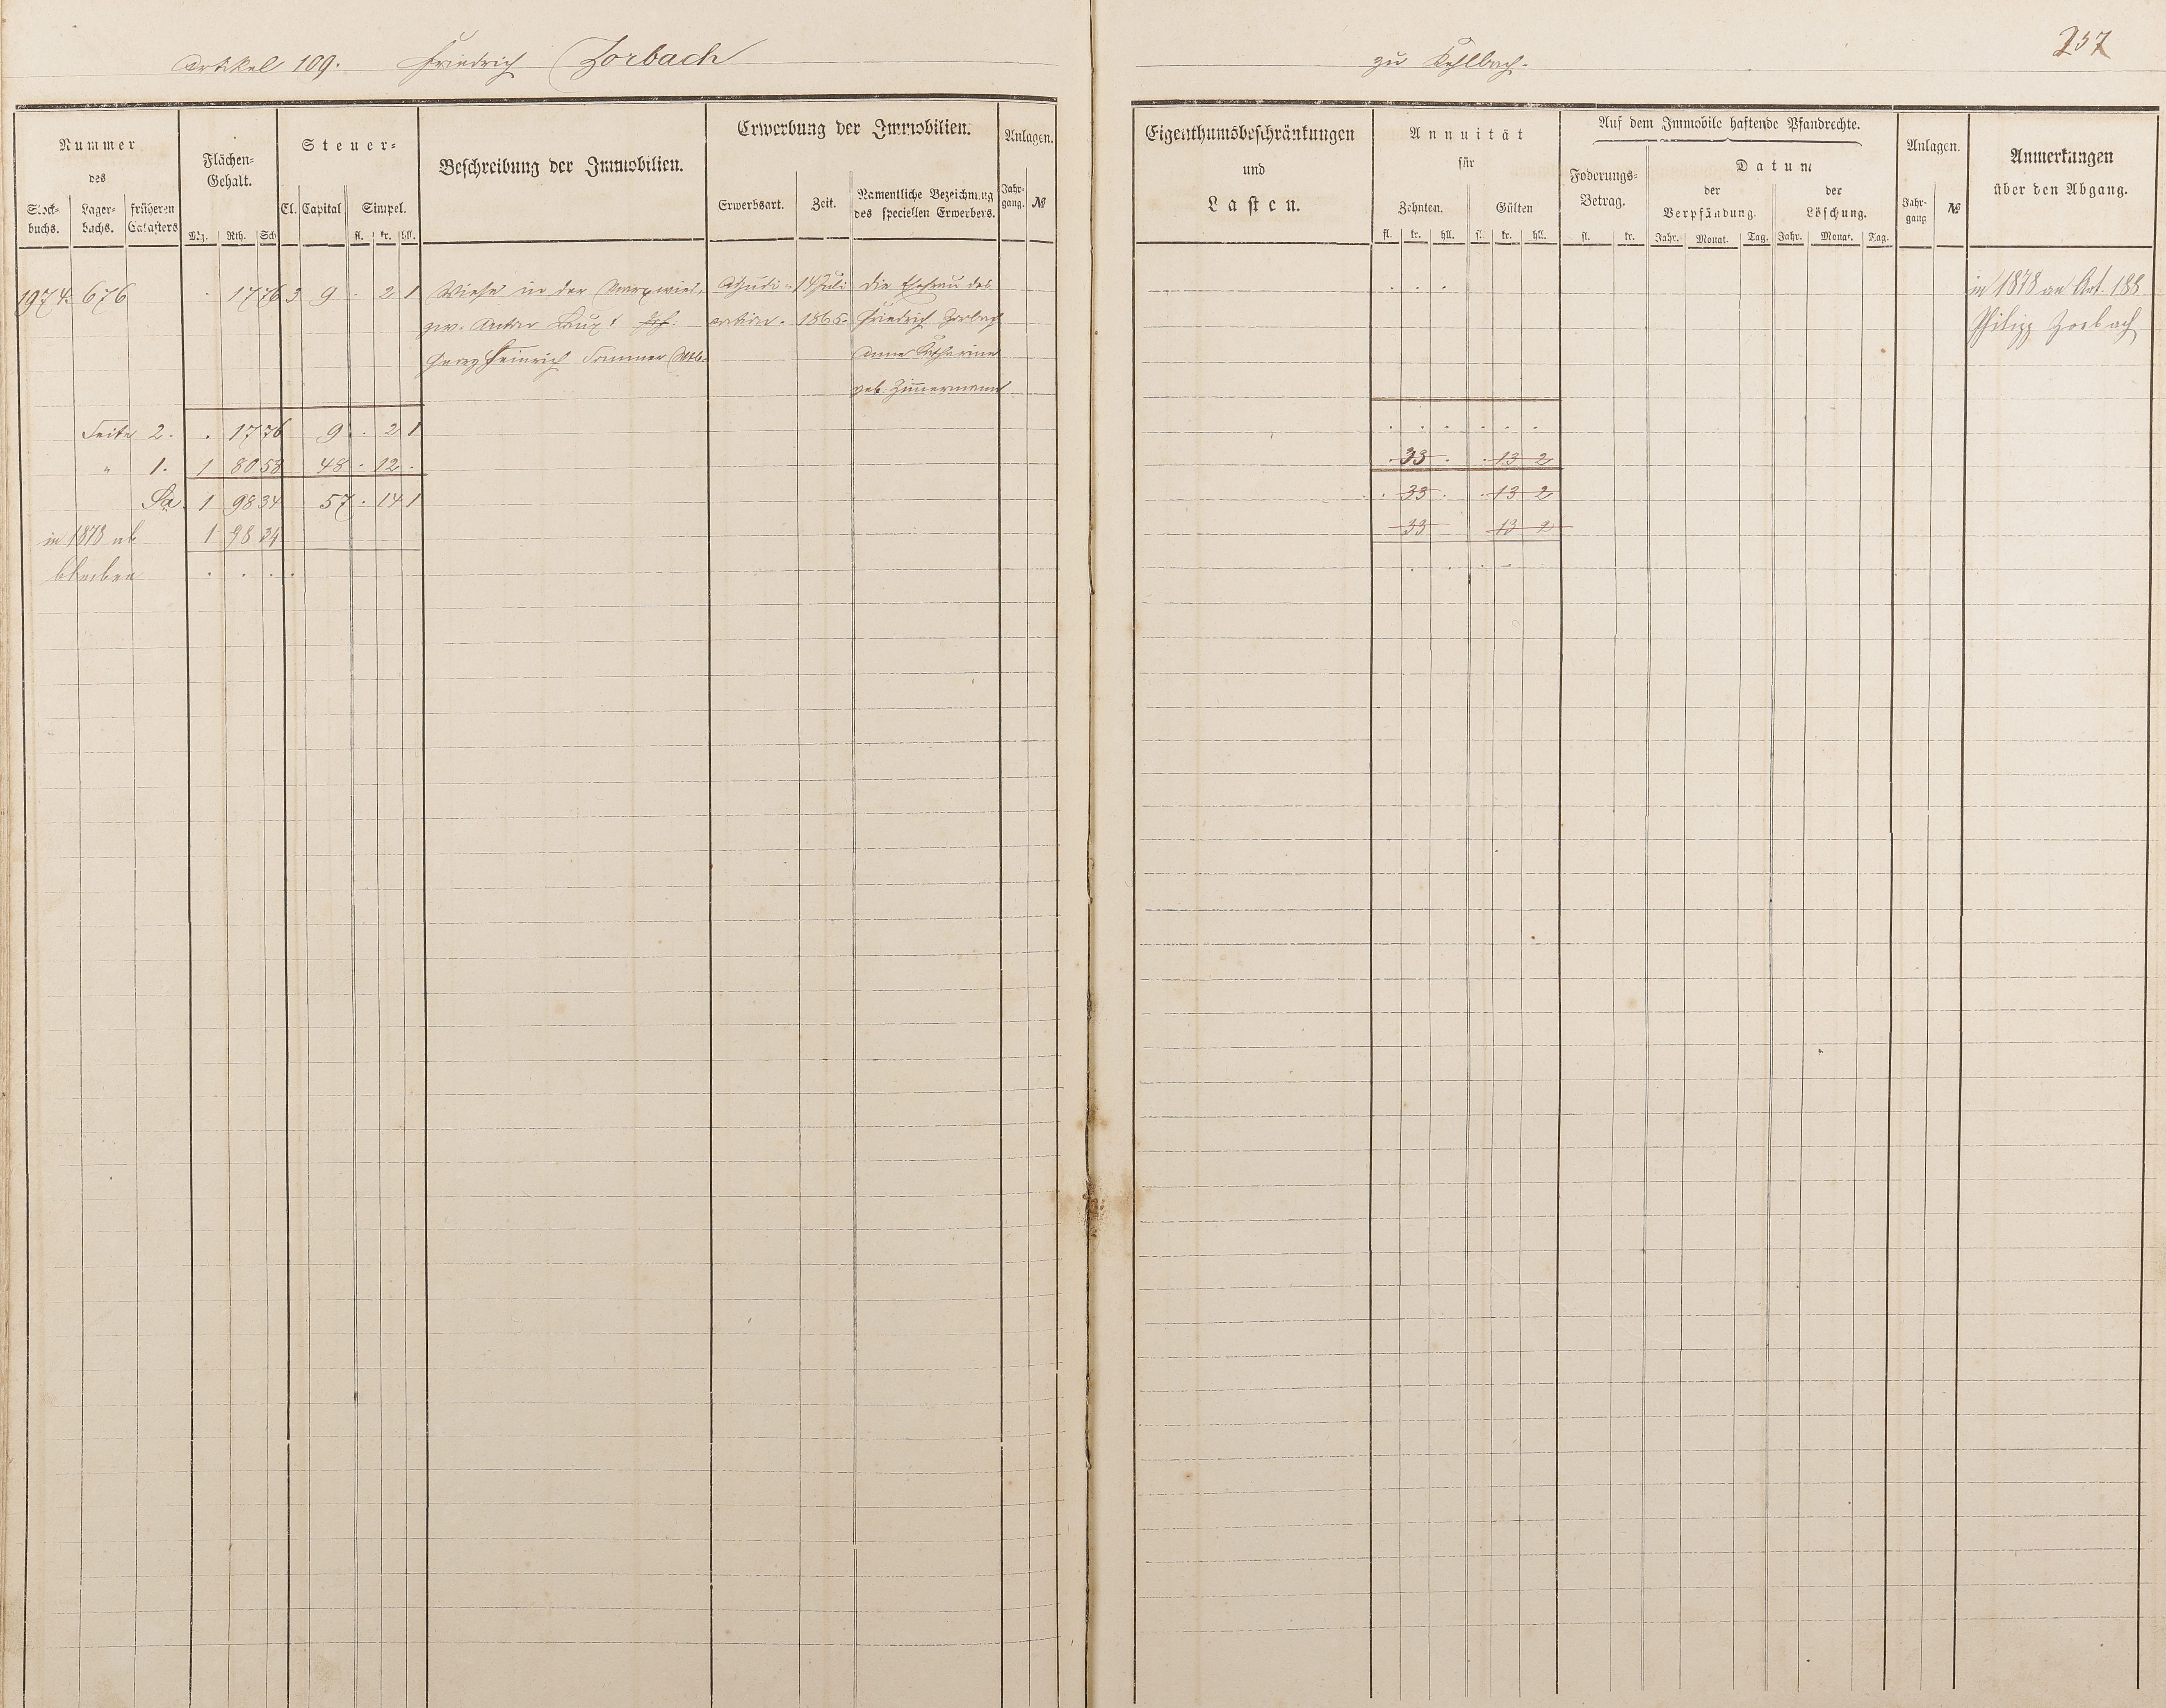 Artikel 109. Friedrich Zorbach
zu Kehlbach.
257
Nummer
des
Stock-
buchs.
Lager-
buchs.
früheren
Catasters
Flächen-
Gehalt.
Mg. Rth. Sch
Steuer-
Cl. Capital Simpel.
fl. kr. hll.
Beschreibung der Immobilien.
Erwerbung der Immobilien.
Erwerbsart. Zeit.
Namentliche Bezeichnung
des speciellen Erwerbers.
Anlagen.
Jahr-
gang. №
Eigenthumsbeschränkungen
und
Lasten.
Annuität
für
Zehnten. Gülten
fl. kr. hll. fl. kr. hll.
Auf dem Immobile haftende Pfandrechte.
Foderungs-
Betrag.
fl. kr.
Datum
der
Verpfändung.
Jahr. Monat. Tag.
der
Löschung.
Jahr. Monat. Tag.
Anlagen.
Jahr-
gang №
Anmerkungen
über den Abgang.
1974. 676 . 17 76 3 9 . 2 1 Wiese in der Adjudi- 14 Juli die Ehefrau des
zw. Anton cation. 1865. Friedrich Zorbach
Georg Heinrich Sommer Anne Katharine
geb. Zimmermann
in 1878 an Art. 188
Philipp Zorbach
Seite 2. . 17 76 9 . 2 1
" 1. 1 80 58 48 . 12 . . 33 . . 13 2
Sa. 1 98 34 57 . 14 1 . 33 . . 13 2
in 1878 ab 1 98 34 33 13 2
bleiben . . . .